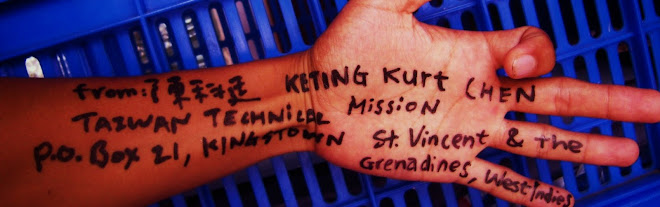 from: 陳科廷 KETING Kurt CHEN
TAIWAN TECHNICAL Mission
P.O. Box 21, KINGSTOWN St. Vincent & The
Grenadines, West Indies